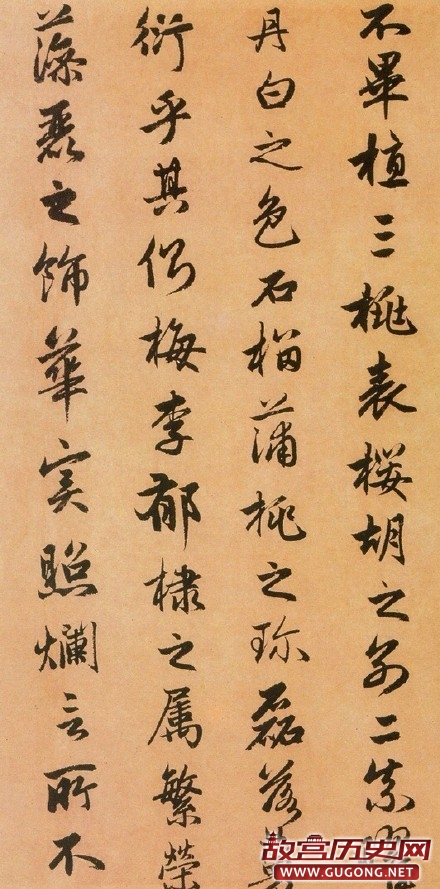 不畢植三桃表櫻胡之別二柰曜
丹白之色石榴蒲桃之珍磊落蔓
衍乎其側梅李郁棣之属繁榮
藻麗之飾華实照爛言所不
故宫历史网
WWW.GUGONG.NET